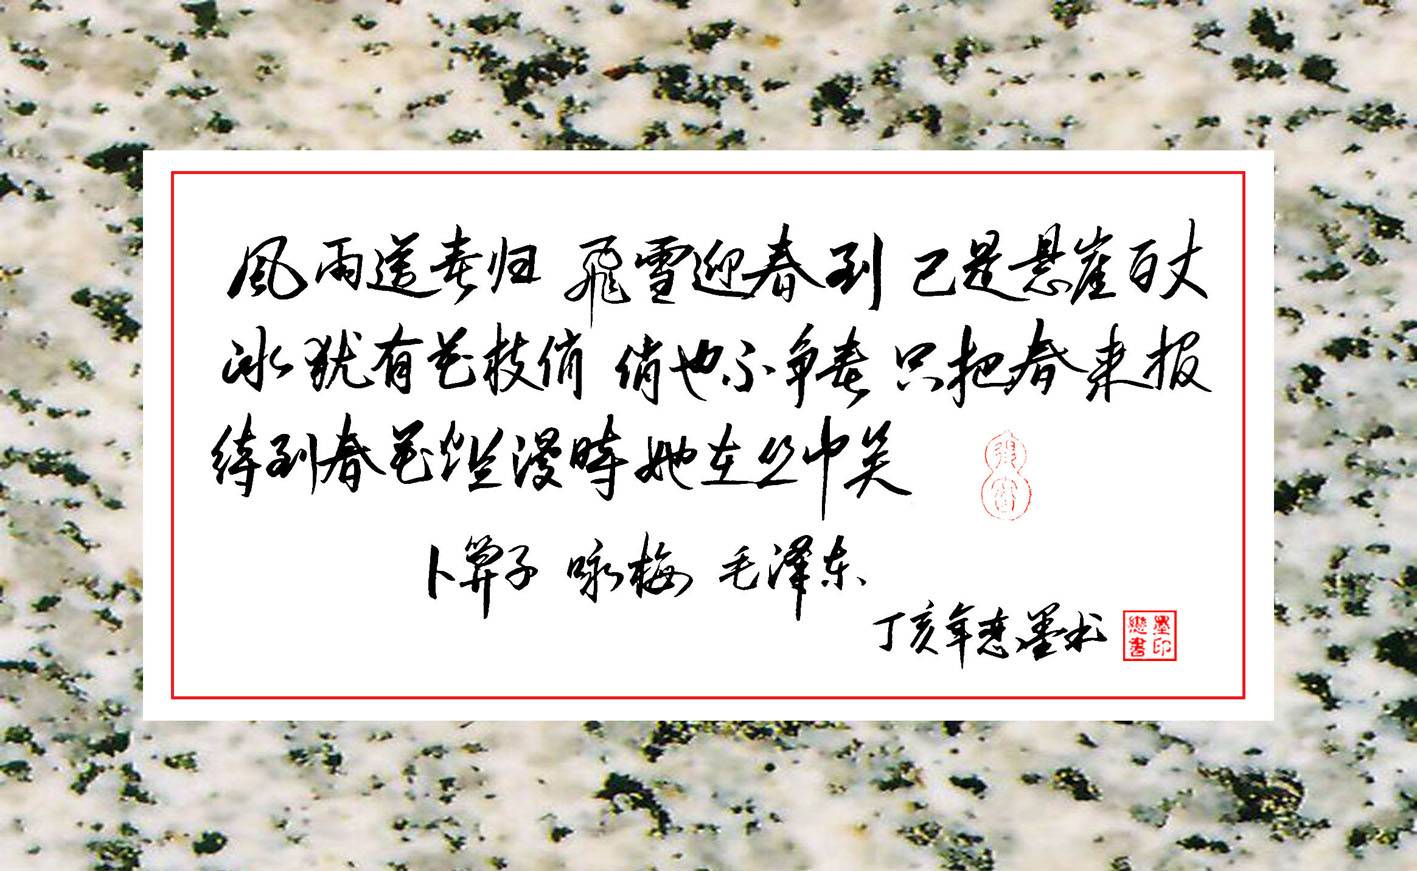 风雨送春归 飛雪迎春到 已是悬崖百丈
冰 犹有花枝俏 俏也不争春 只把春来报
待到春花烂漫時 她在丛中笑
卜算子 咏梅 毛泽东
丁亥年恋墨书
墨印
戀書